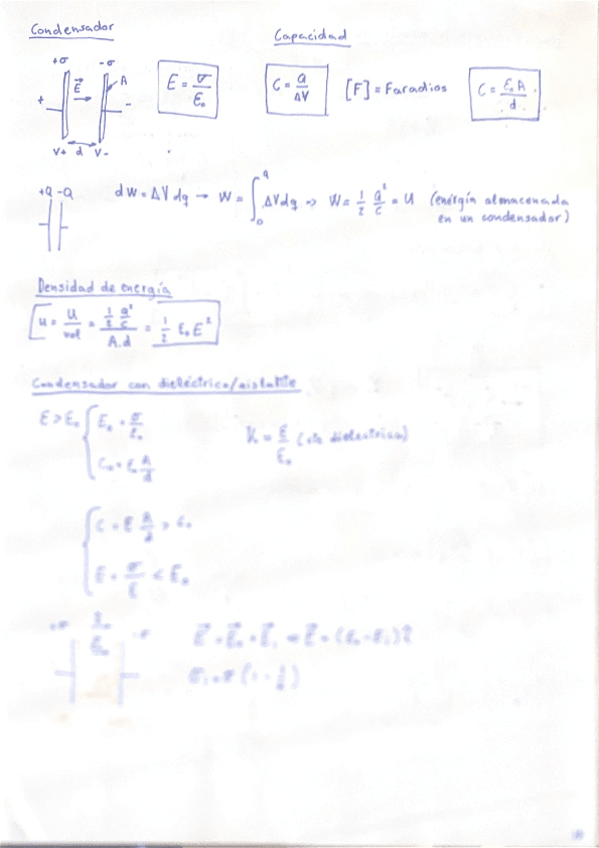 Condensador
Capacidad
+σ -σ
E⃗ A
+ -
V+ d V-
E = σ/ε₀
C = Q/ΔV [F] = Faradios C = ε₀A/d
+Q -Q dW = ΔV dq → W = ∫₀^Q ΔVdq => W = 1/2 Q²/C = U (energía almacenada
en un condensador)
Densidad de energía
u = U/vol = (1/2 Q²/C)/(A.d) = 1/2 ε₀ E²
Condensador con dieléctrico/aislante
ε > ε₀ { E₀ = σ/ε₀
C₀ = ε₀ A/d
K = ε/ε₀ (cte dieléctrica)
{ C = ε A/d > C₀
E = σ/ε < E₀